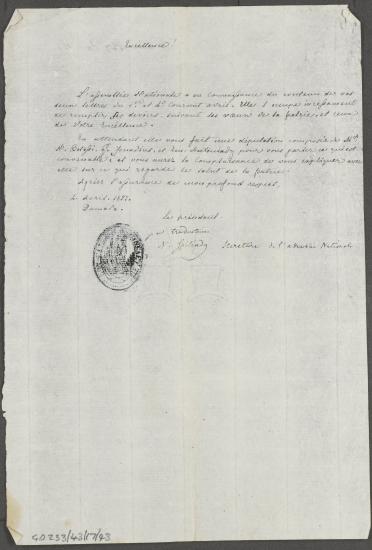 Excellence!
L'assemblée Nationale a eu connoissance du contenu de vos
deux lettres du 1er et 2d Courant avril. Elle s'occupe incessamment
de remplir ses devoirs, suivant les vœux de la patrie, et ceux
de Votre Excellence.
En attendant elle vous fait une députation composée de Mrs
G. Jennadius, et pour vous parler ce qui est
convenable; et vous aurez la Complaisance de vous expliquer avec
elle sur ce qui regarde le salut de la patrie.
Agréez l'assurance de mon profond respect.
2. avril. 1827.
Damala.
Le président
traducteur
N. Secretaire de l'assemblée Nationale
GD233/43/17/93